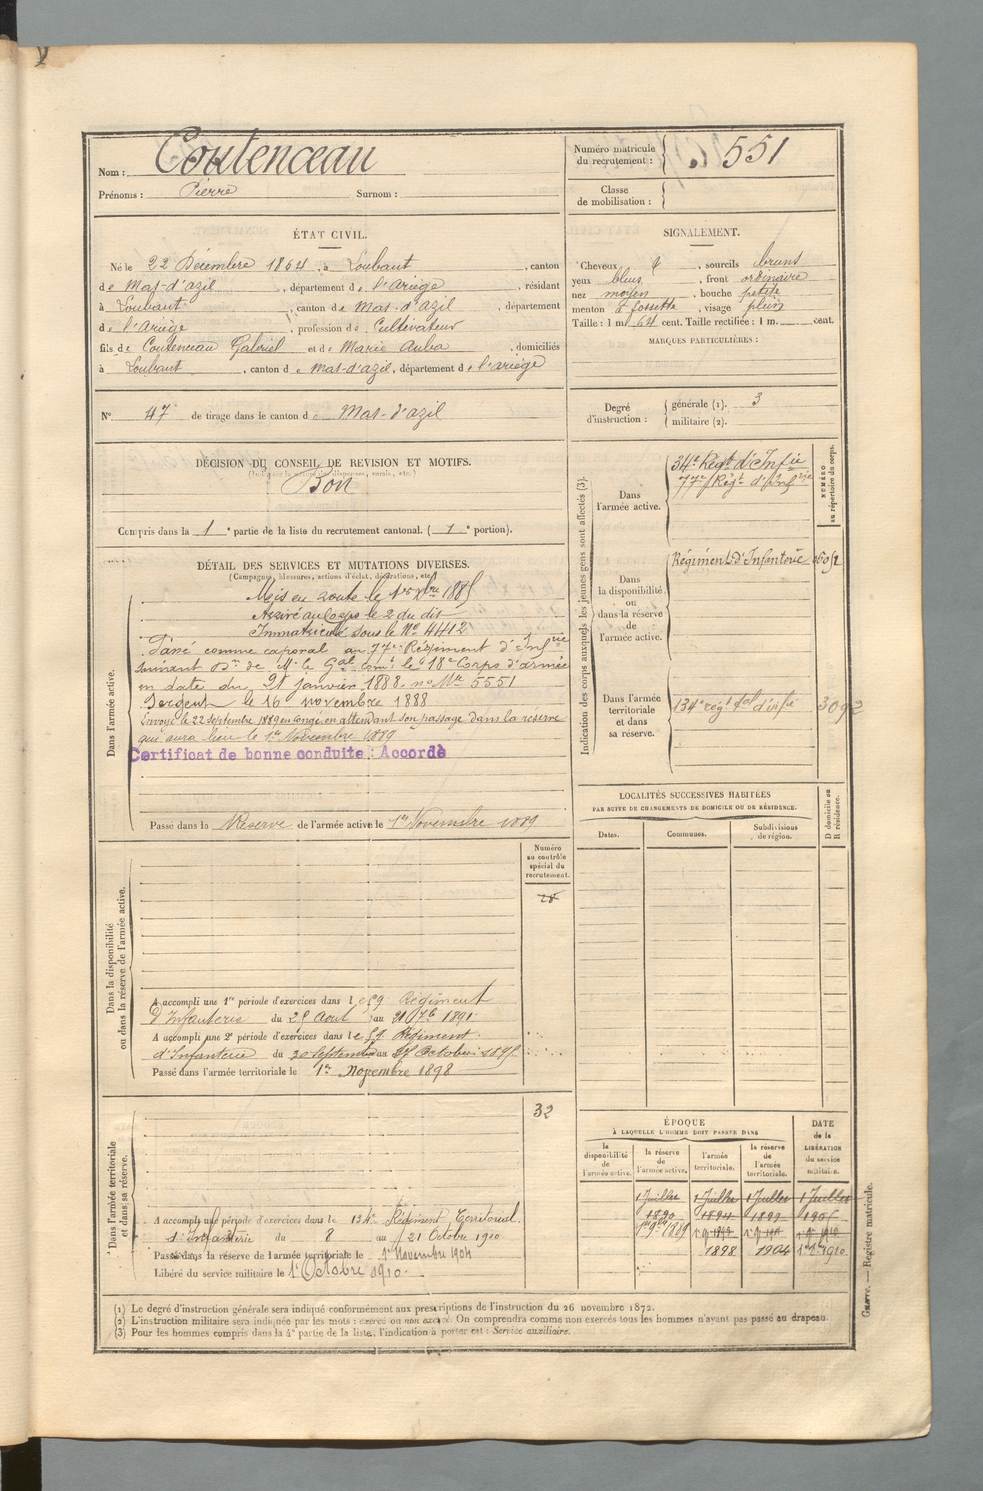 Nom : Coutenceau
Prénoms : Pierre Surnom :
Numéro matricule du recrutement : 551
Classe de mobilisation :
ÉTAT CIVIL.
Né le 22 Décembre 1864, à Loubaut, canton
de Mas-d'azil, département de l'Ariège, résidant
à Loubaut, canton de Mas-d'azil, département
de l'Ariège, profession de Cultivateur
fils de Coutenceau Gabriel et de Marie Auba, domiciliés
à Loubaut, canton de Mas-d'azil, département de l'ariège
SIGNALEMENT.
Cheveux , sourcils bruns
yeux bleus, front ordinaire
nez moyen, bouche petite
menton à fossette, visage plein
Taille : 1 m. 64 cent. Taille rectifiée : 1 m. cent.
MARQUES PARTICULIÈRES :
N° 47 de tirage dans le canton de Mas-d'azil
Degré d'instruction : générale (1). 3
militaire (2).
DÉCISION DU CONSEIL DE REVISION ET MOTIFS.
Bon
Compris dans la 1e partie de la liste du recrutement cantonal. (1e portion).
DÉTAIL DES SERVICES ET MUTATIONS DIVERSES.
(Campagnes, blessures, actions d'éclat, décorations, etc.)
Dans l'armée active.
Mis en route le 1er Xbre 1885
Arrivé au Corps le 2 du dit
Immatriculé sous le N° 4412
Passé comme caporal au 77e Régiment d'Infrie
suivant On de Mr le Gal Comt le 18e Corps d'armée
en date du 21 janvier 1888. no Mle 5551
Sergent le 16 novembre 1888
Envoyé le 22 Septembre 1889 en congé en attendant son passage dans la réserve
qui aura lieu le 1er Novembre 1889
Certificat de bonne conduite : Accordé
Passé dans la Réserve de l'armée active le 1er Novembre 1889
Indication des corps auxquels les jeunes gens sont affectés (3).
NUMÉRO au répertoire du corps.
Dans l'armée active.
34e Régt d'Infie
77e Régt d'Infrie
Dans la disponibilité ou dans la réserve de l'armée active.
Régiment d'Infanterie
Dans l'armée territoriale et dans sa réserve.
134e régt tal d'infie 3092
LOCALITÉS SUCCESSIVES HABITÉES
PAR SUITE DE CHANGEMENTS DE DOMICILE OU DE RÉSIDENCE.
Dates. Communes. Subdivisions de région. D domicile ou R résidence.
Numéro au contrôle spécial du recrutement.
Dans la disponibilité ou dans la réserve de l'armée active.
A accompli une 1re période d'exercices dans le 59 Régiment
D'Infanterie du 25 Aout au 21 7b 1891
A accompli une 2e période d'exercices dans le 59 Régiment
d'Infanterie du 30 Septembre au 27 Octobre 1895
Passé dans l'armée territoriale le 1er Novembre 1898
32
Dans l'armée territoriale et dans sa réserve.
A accompli une période d'exercices dans le 134e Régiment Territorial
d'Infanterie du 8 au 21 Octobre 1900
Passé dans la réserve de l'armée territoriale le 1er Novembre 1904
Libéré du service militaire le 1er Octobre 1910.
ÉPOQUE
À LAQUELLE L'HOMME DOIT PASSER DANS
la disponibilité de l'armée active. la réserve de l'armée active. l'armée territoriale. la réserve de l'armée territoriale.
DATE de la LIBÉRATION du service militaire.
1 Juillet 1 Juillet 1 Juillet 1 Juillet
1890 1894 1899 1905
1er 9bre 1889
1898 1904 1910
(1) Le degré d'instruction générale sera indiqué conformément aux prescriptions de l'instruction du 26 novembre 1872.
(2) L'instruction militaire sera indiquée par les mots : exercé ou non exercé. On comprendra comme non exercés tous les hommes n'ayant pas passé au drapeau.
(3) Pour les hommes compris dans la 4e partie de la liste, l'indication à porter est : Service auxiliaire.
Guerre. — Registre matricule.